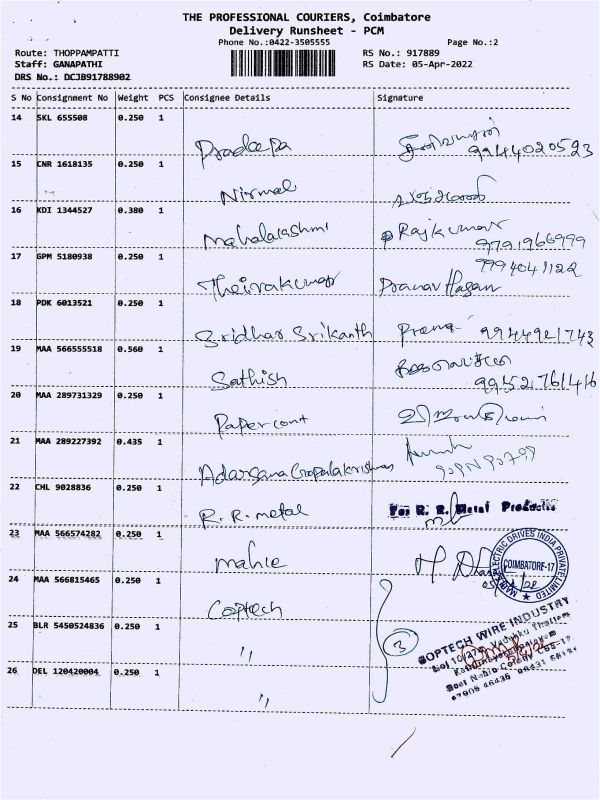 THE PROFESSIONAL COURIERS, Coimbatore
Delivery Runsheet - PCM
Phone No.:0422-3505555
Page No.:2
Route: THOPPAMPATTI
RS No.: 917889
Staff: GANAPATHI
RS Date: 05-Apr-2022
DRS No.: DCJB91788902
S No Consignment No Weight PCS Consignee Details Signature
14 SKL 655508 0.250 1
Pradeepa 9944020523
15 CNR 1618135 0.250 1
Nirmal
16 KDI 1344527 0.380 1
Mahalakshmi Rajkumar
9791966999
17 GPM 5180938 0.250 1
9994041122
Theivakumar Pranav Hasan
18 PDK 6013521 0.250 1
Sridhar Srikanth 9944921743
19 MAA 566555518 0.560 1
Sathish 995521761416
20 MAA 289731329 0.250 1
Papercont
21 MAA 289227392 0.435 1
Adarsana Gopalakrishnan
22 CHL 9028836 0.250 1
R.R. metal For R. R. Metal Products
23 MAA 566574282 0.250 1
mahle
MAHLE ELECTRIC DRIVES INDIA PRIVATE LIMITED
COIMBATORE-17
24 MAA 566815465 0.250 1
Coptech
25 BLR 5450524836 0.250 1
〃
3
COPTECH WIRE INDUSTRY
26 DEL 120420004 0.250 1
〃